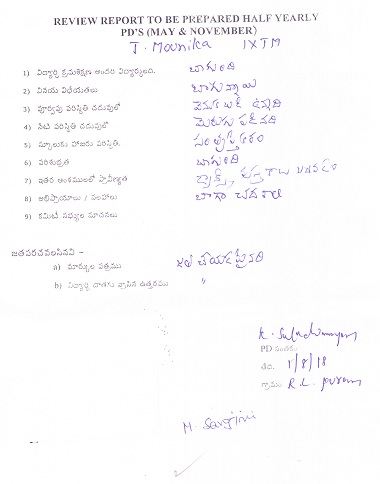 REVIEW REPORT TO BE PREPARED HALF YEARLY
PD'S (MAY & NOVEMBER)
J. Mounika IXTM
1) విద్యార్థి క్రమశిక్షణ అందరి విద్యార్థులది. బాగుంది
2) వినయ విధేయతలు బాగున్నాయి
3) పూర్వపు పరిస్థితి చదువులో వెనుకబడి ఉన్నది
4) నేటి పరిస్థితి చదువులో మెరుగు పడినది
5) స్కూలుకు హాజరు పరిస్థితి. సంతృప్తికరం
6) పరిశుభ్రత బాగుంది
7) ఇతర అంశములలో ప్రావీణ్యత
8) అభిప్రాయాలు / సలహాలు బాగా చదవాలి
9) కమిటీ సభ్యుల సూచనలు
జతపరచవలసినవి -
a) మార్కుల పత్రము
b) విద్యార్థి దాతకు వ్రాసిన ఉత్తరము "
PD సంతకం
తేది. 1/8/18
గ్రామం R.L. puram
M. Sargini